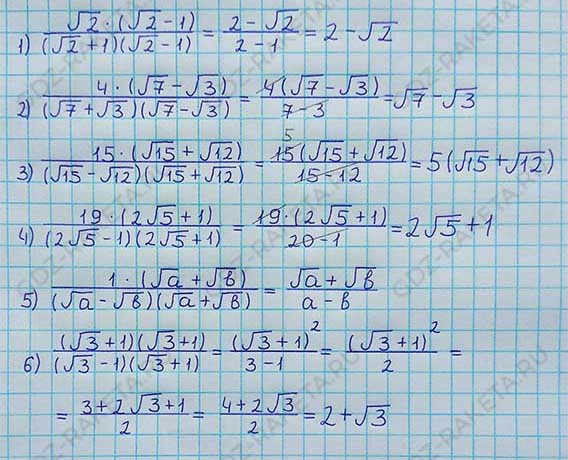 1) √2·(√2-1)/(√2+1)(√2-1) = 2-√2/2-1 = 2-√2
2) 4·(√7-√3)/(√7+√3)(√7-√3) = 4(√7-√3)/7-3 = √7-√3
3) 15·(√15+√12)/(√15-√12)(√15+√12) = 5 15(√15+√12)/15-12 = 5(√15+√12)
4) 19·(2√5+1)/(2√5-1)(2√5+1) = 19·(2√5+1)/20-1 = 2√5+1
5) 1·(√a+√в)/(√a-√в)(√a+√в) = √a+√в/a-в
6) (√3+1)(√3+1)/(√3-1)(√3+1) = (√3+1)²/3-1 = (√3+1)²/2 =
= 3+2√3+1/2 = 4+2√3/2 = 2+√3
GDZ-RAKETA.RU